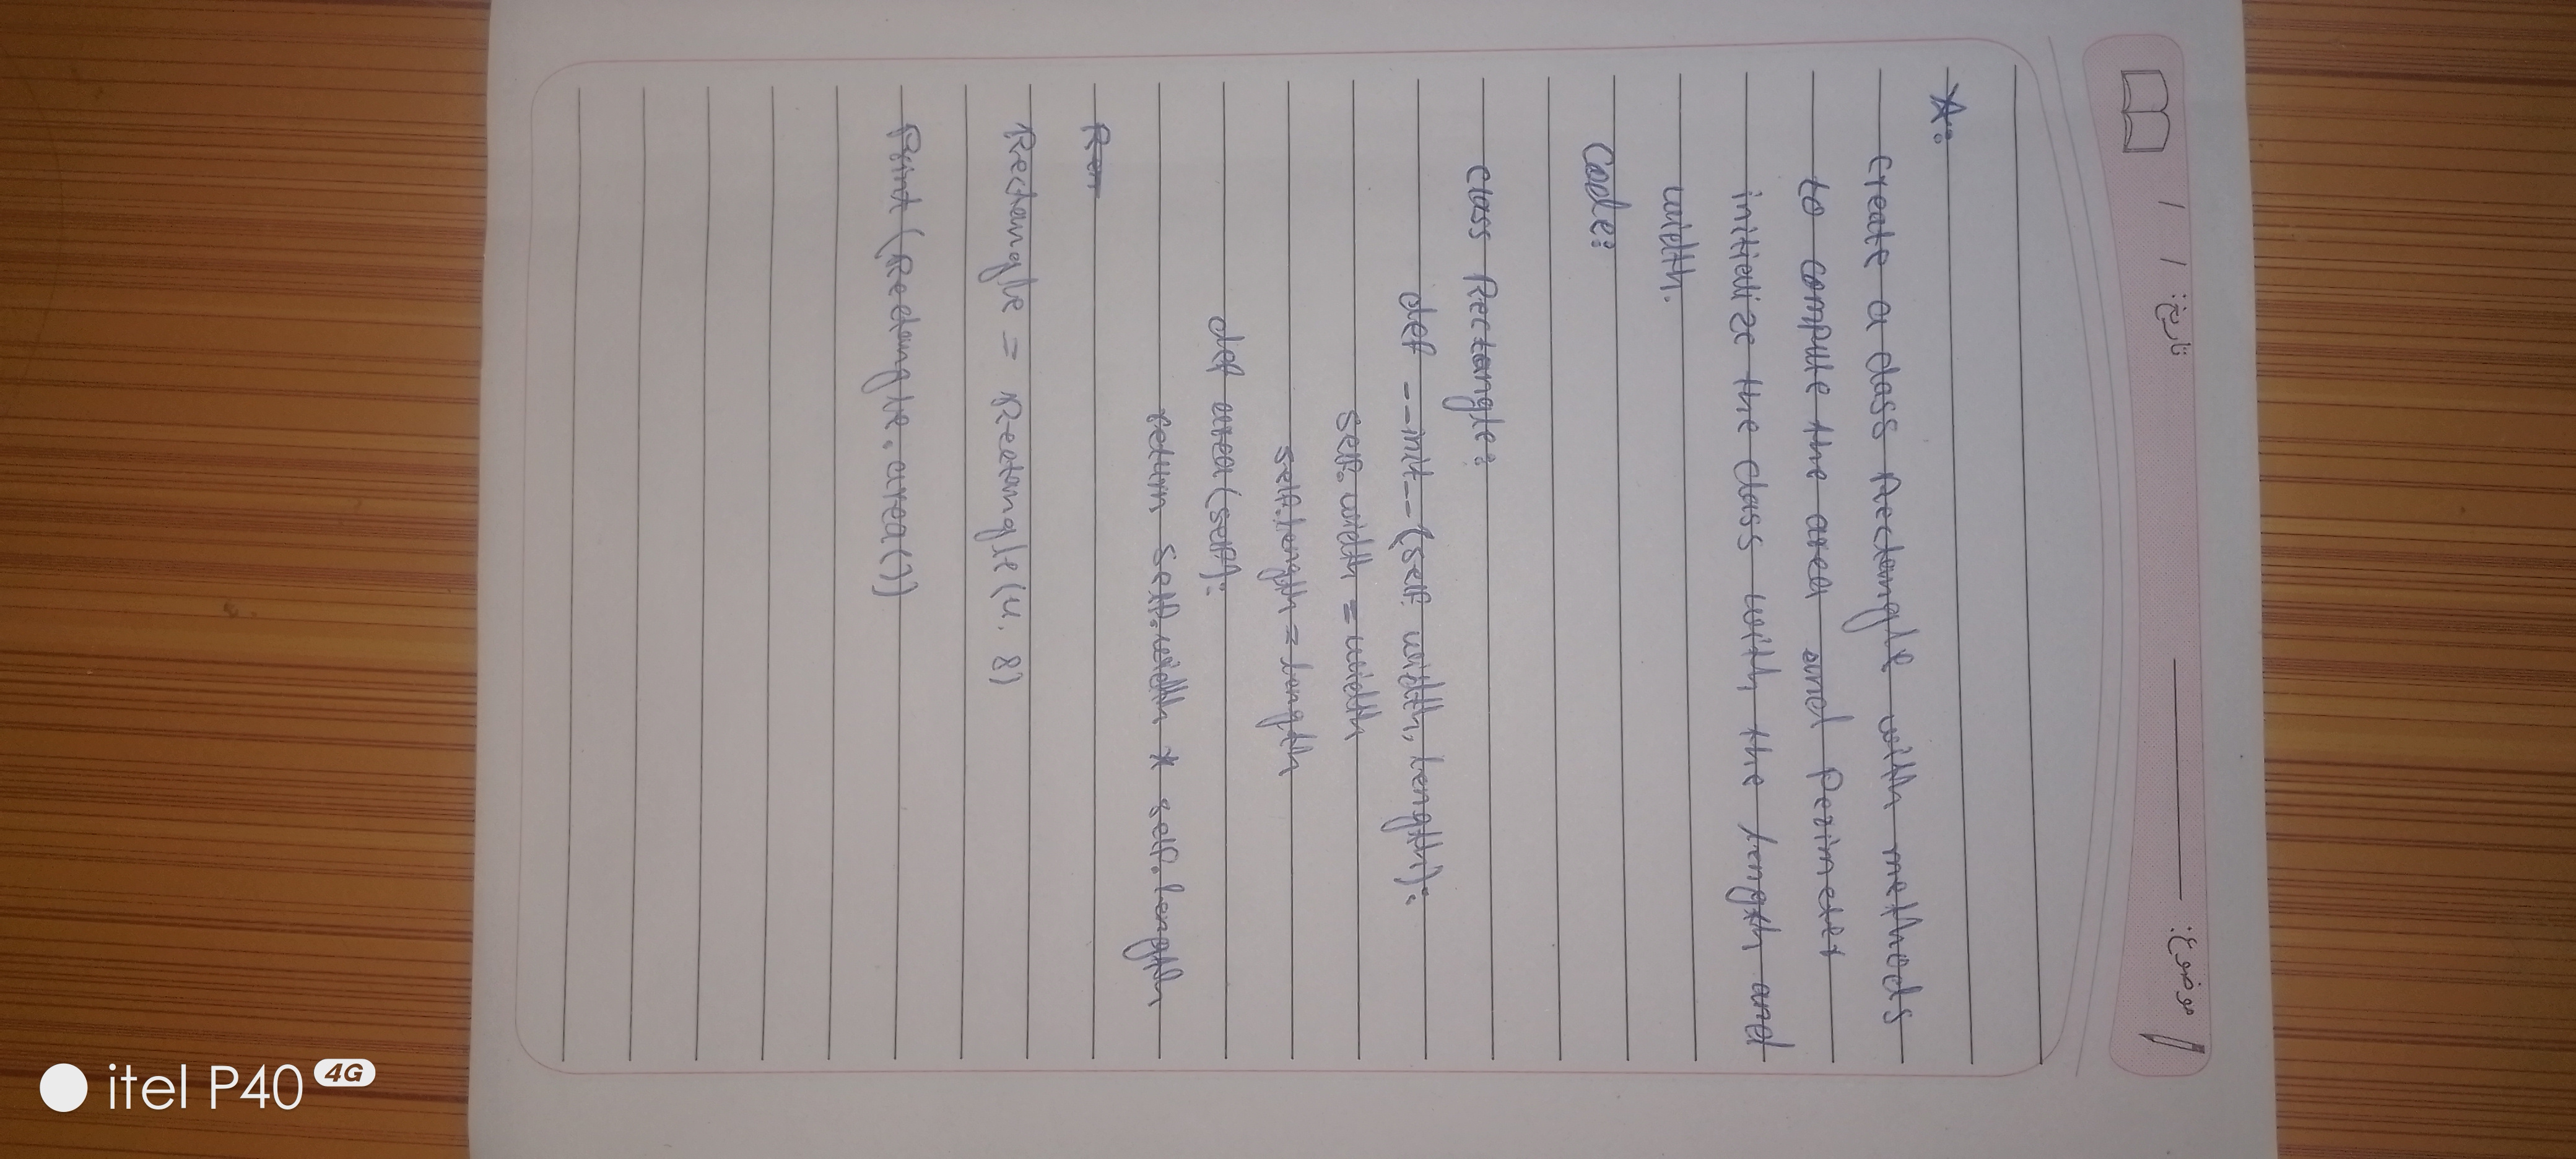 تاریخ: / /
موضوع:
*:
Create a class Rectangle with methods
to compute the area and Perimeter
initialize the class with the length and
width.
Code:
class Rectangle:
def __init__(self. width, length):
self. width = width
self.length = length
def area(self):
return self.width * self.length
Rectangle = Rectangle(4, 8)
Print (Rectangle.area())
itel P40 4G